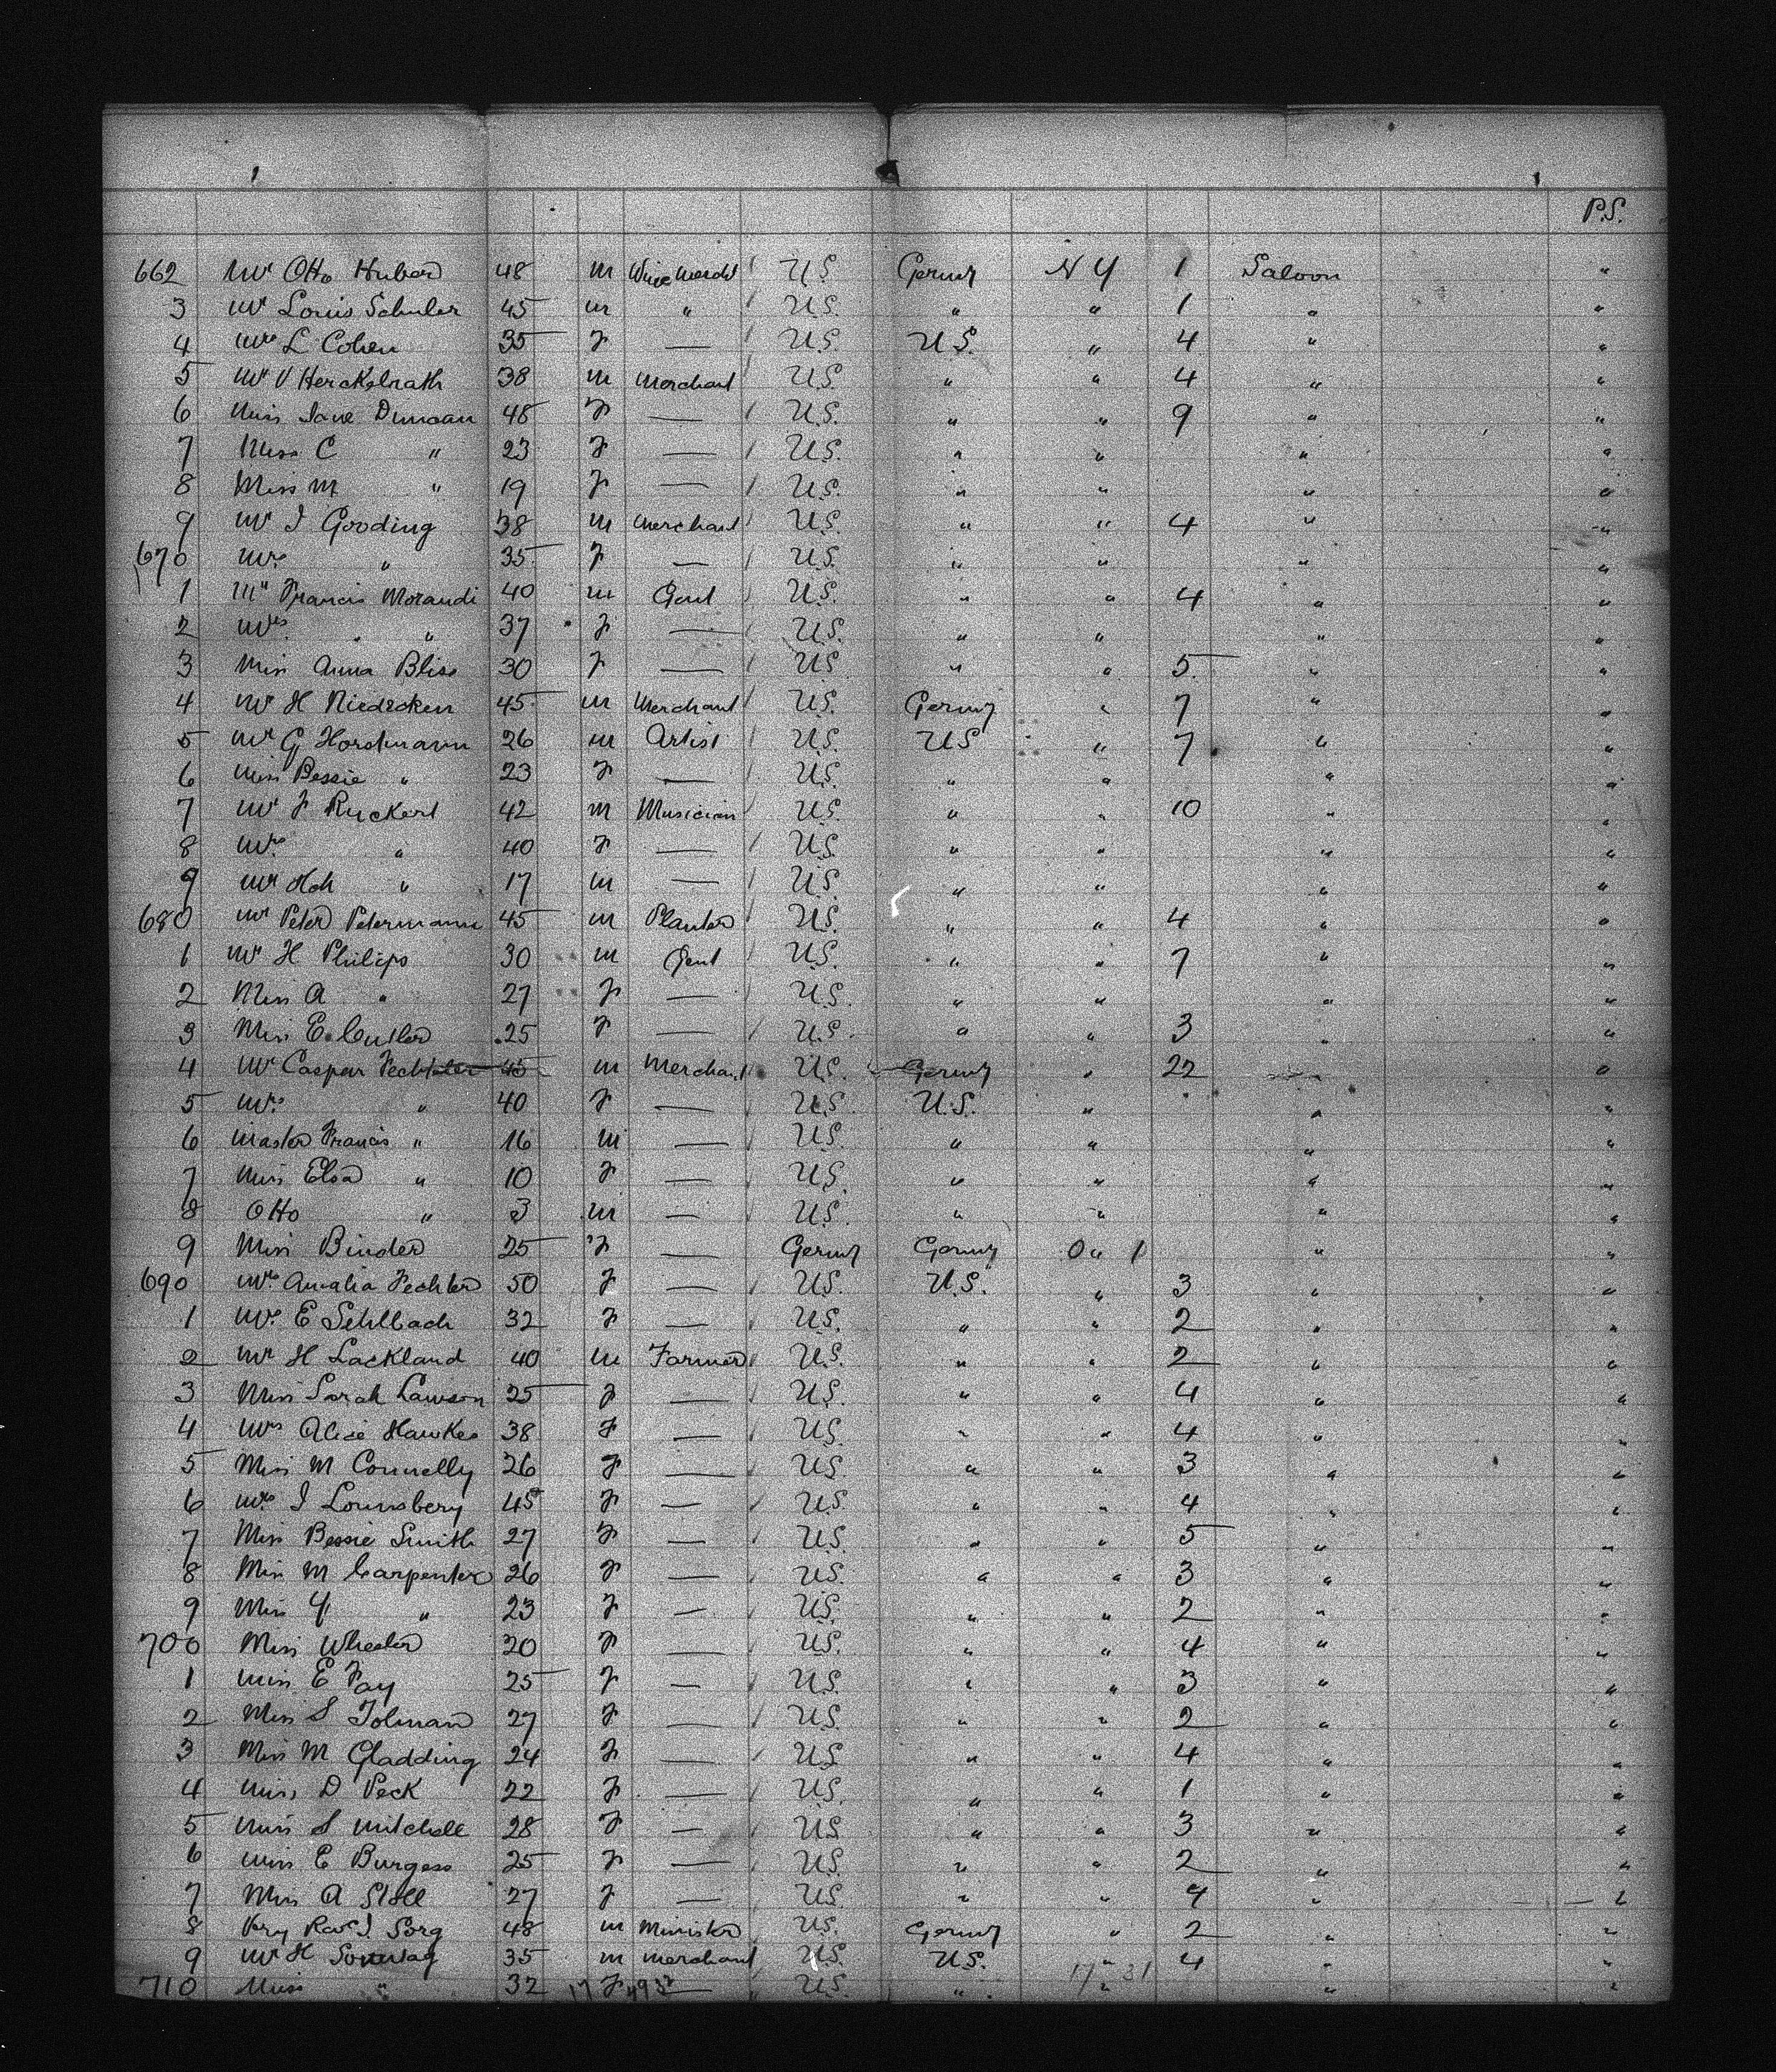 P.S.
662 Mr Otto Huber 48 m Wine Merch U.S. Germy N Y 1 Saloon "
3 Mr Louis Schuler 45 m " U.S. " " 1 " "
4 Mrs L Cohen 35 f — U.S. U.S. " 4 " "
5 Mr V Herckelrath 38 m Merchant U.S. " " 4 " "
6 Miss Jane Duncan 48 f — U.S. " " 9 " "
7 Miss C " 23 f — U.S. " " " "
8 Miss M " 19 f — U.S. " " " "
9 Mr I Gooding 38 m Merchant U.S. " " 4 " "
670 Mrs " 35 f — U.S. " " " "
1 Mr Francis Morandi 40 m Gent U.S. " " 4 " "
2 Mrs " " 37 f — U.S. " " " "
3 Miss Anna Bliss 30 f — U.S. " " 5 " "
4 Mr H Niedecken 45 m Merchant U.S. Germy " 7 " "
5 Mr G Horstmann 26 m Artist U.S. U.S " 7 " "
6 Miss Bessie " 23 f — U.S. " " " "
7 Mr F Ruckert 42 m Musician U.S. " " 10 " "
8 Mrs " 40 f — U.S. " " " "
9 Mr " 17 m — U.S. " " " "
680 Mr Peter Petermann 45 m Planter U.S. " " 4 " "
1 Mr H Philips 30 m Gent U.S. " " 7 " "
2 Miss A " 27 f — U.S. " " " "
3 Miss E. Cutler 25 f — U.S. " " 3 " "
4 Mr Caspar Fechteler 45 m Merchant U.S. Germy " 22 " "
5 Mrs " 40 f — U.S. U.S. " " "
6 Master Francis " 16 m — U.S. " " " "
7 Miss Elsa " 10 f — U.S. " " " "
8 Otto " 3 m — U.S. " " " "
9 Miss Binder 25 f — Germy Germy " 1 " "
690 Mrs Amalia Fechter 50 f — U.S. U.S. " 3 " "
1 Mrs E Sehlbach 32 f — U.S. " " 2 " "
2 Mr H Lackland 40 m Farmer U.S. " " 2 " "
3 Miss Sarah Lawson 25 f — U.S. " " 4 " "
4 Mrs Alice Hawkes 38 f — U.S. " " 4 " "
5 Miss M Connelly 26 f — U.S. " " 3 " "
6 Mrs I Lounsbery 45 f — U.S " " 4 " "
7 Miss Bessie Smith 27 f — U.S. " " 5 " "
8 Miss M Carpenter 26 f — U.S. " " 3 " "
9 Miss Y " 23 f — U.S. " " 2 " "
700 Miss Wheeler 20 f — U.S. " " 4 " "
1 Miss E Fay 25 f — U.S " " 3 " "
2 Miss S Tolman 27 f — U.S. " " 2 " "
3 Miss M Gladding 24 f — U.S " " 4 " "
4 Miss D Peck 22 f — U.S. " " 1 " "
5 Miss S Mitchell 28 f — U.S " " 3 " "
6 Miss E Burgess 25 f — U.S " " 2 " "
7 Miss A Stoll 27 f — U.S " " 4 "
8 Very Rev I. Sorg 48 m Minister U.S. Germy " 2 " "
9 Mr H Sonntag 35 m Merchant U.S. U.S. " 4 " "
710 Miss " 32 f — U.S. " " " "